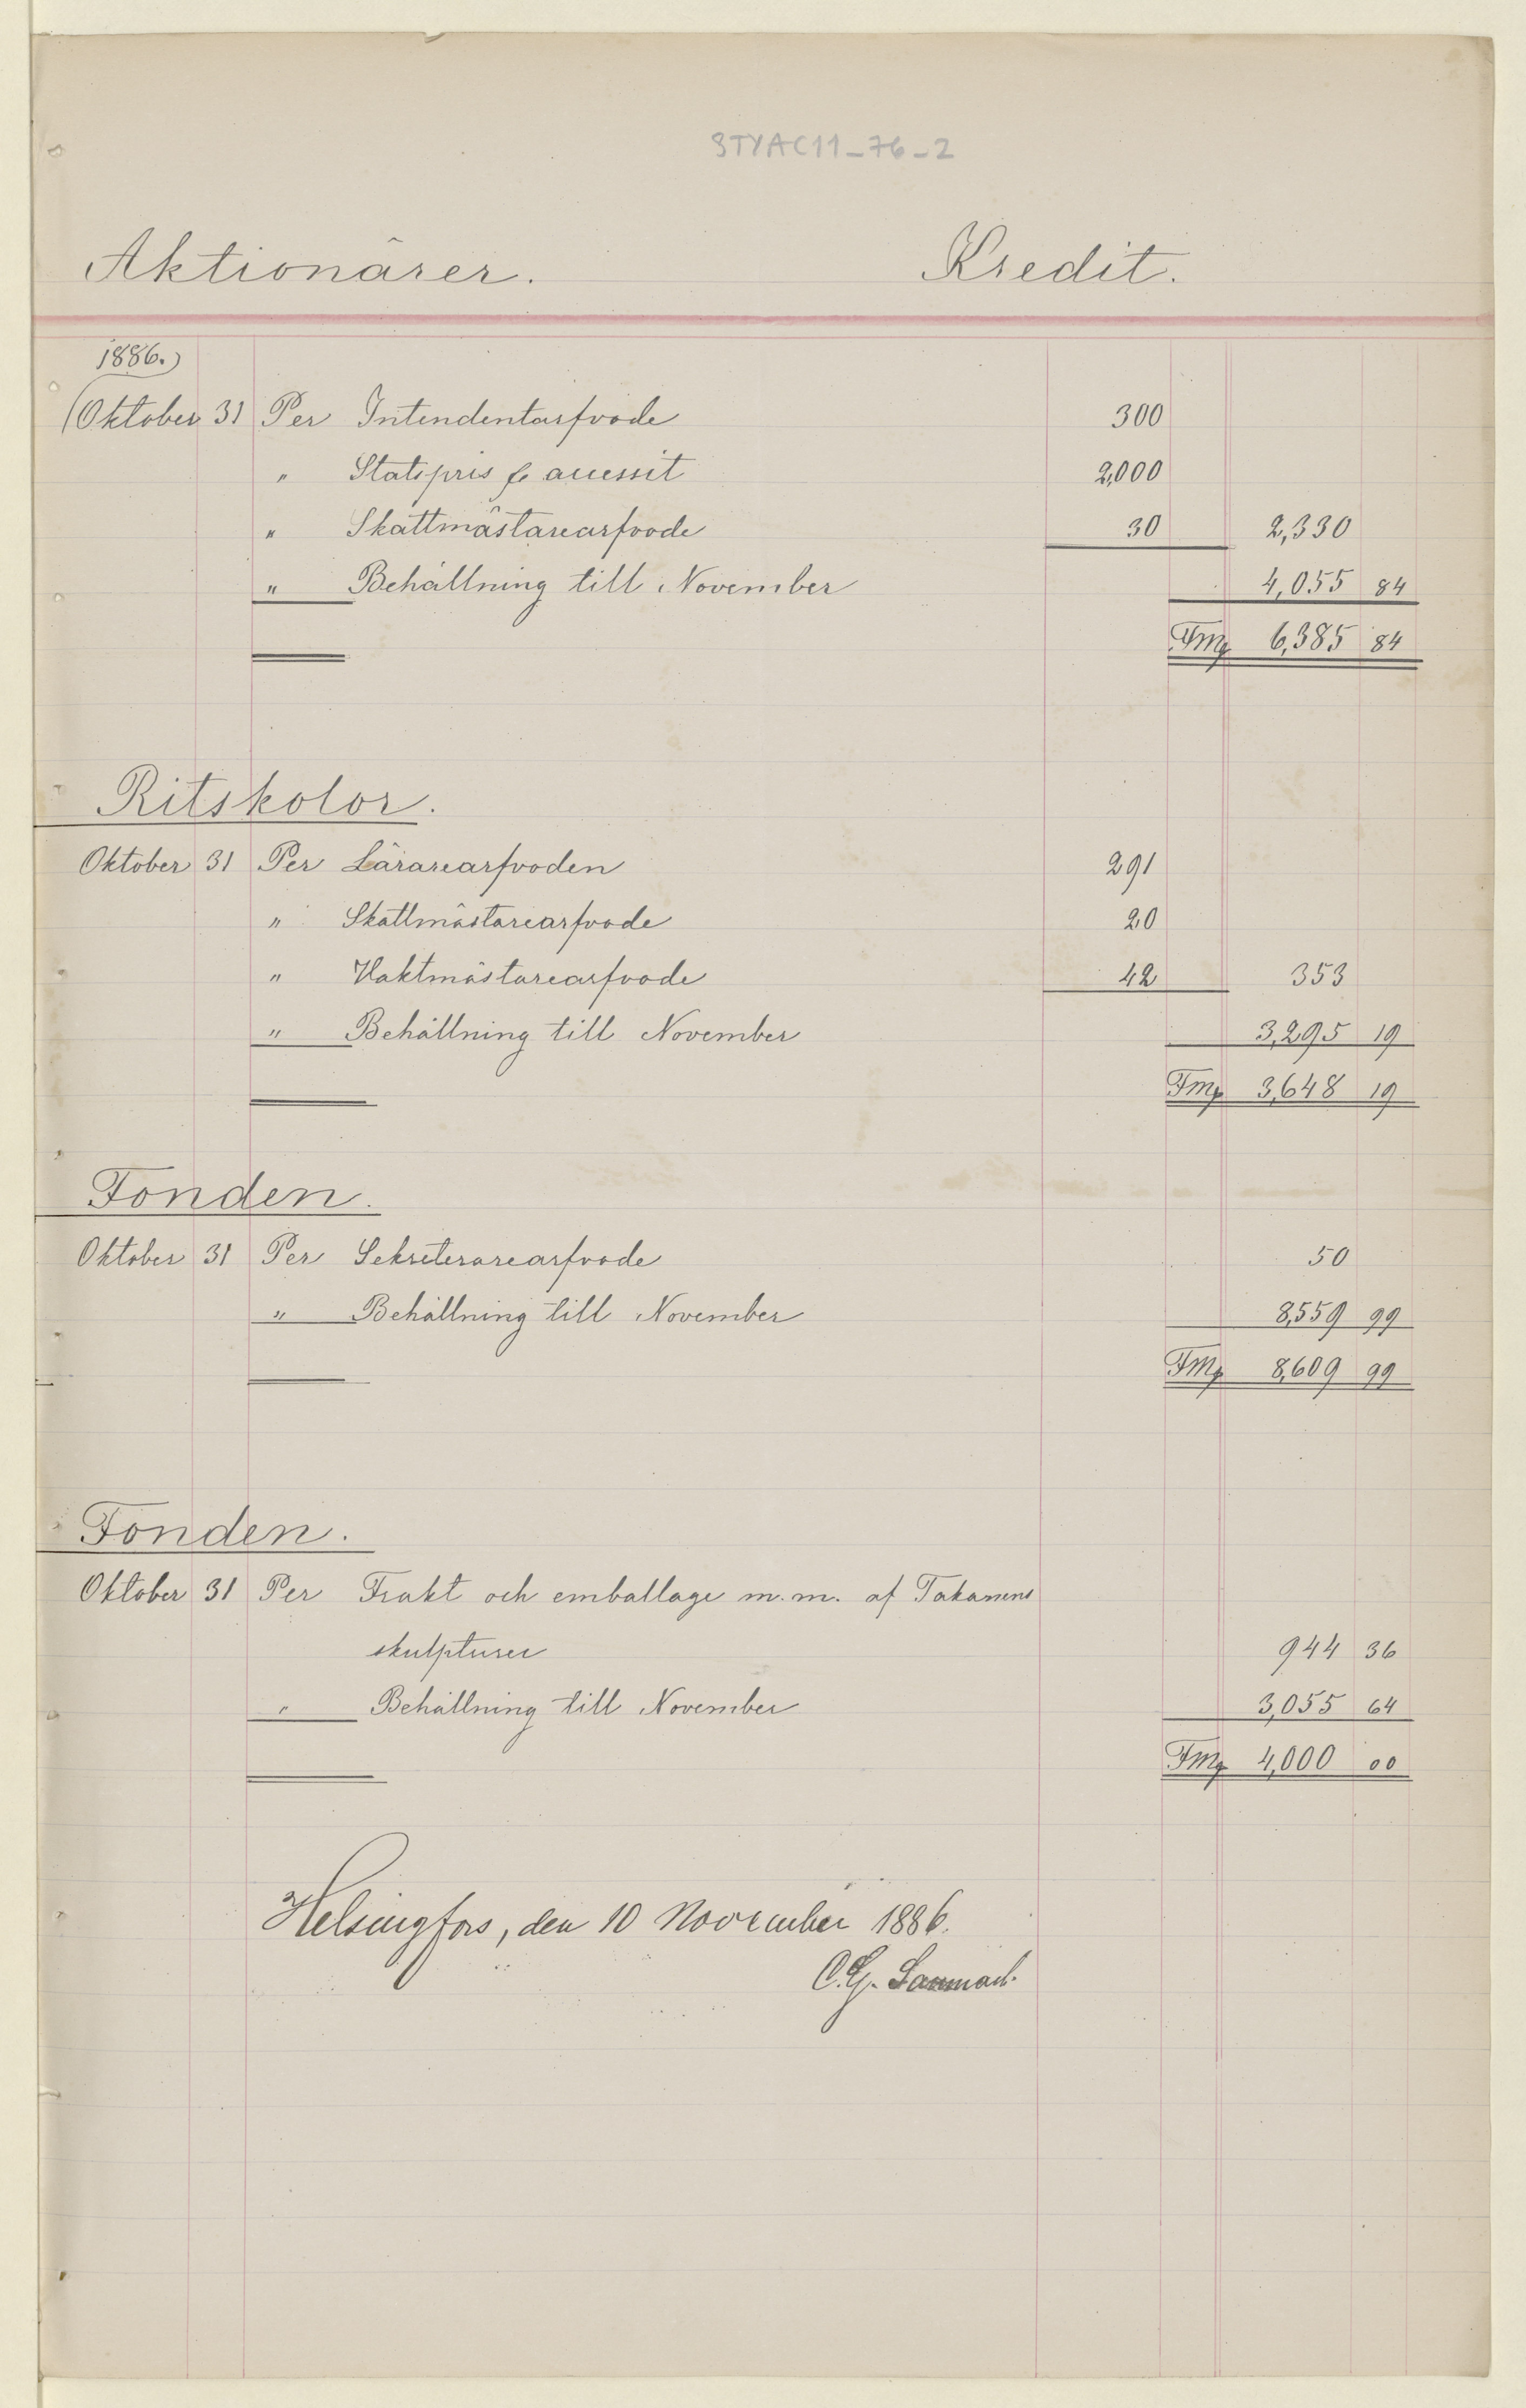 STYAC11_76_2
Aktionärer. Kredit.
1886.)
(Oktober 31 Per Intendentarfvode 300
" Statspris & accessit 2,000
" Skattmästarearfvode 30 2,330
" Behållning till November 4,055 84
Fmg 6,385 84
Ritskolor.
Oktober 31 Per Lärarearfvoden 291
" Skattmästarearfvode 20
" Vaktmästarearfvode 42 353
" Behållning till November 3,295 19
Fmg 3,648 19
Fonden.
Oktober 31 Per Sekreterarearfvode 50
" Behållning till November 8,559 99
Fmg 8,609 99
Fonden.
Oktober 31 Per Frakt och emballage m.m. af Takanens
skulpturer 944 36
" Behållning till November 3,055 64
Fmg 4,000 00
Helsingfors, den 10 November 1886.
C.G.